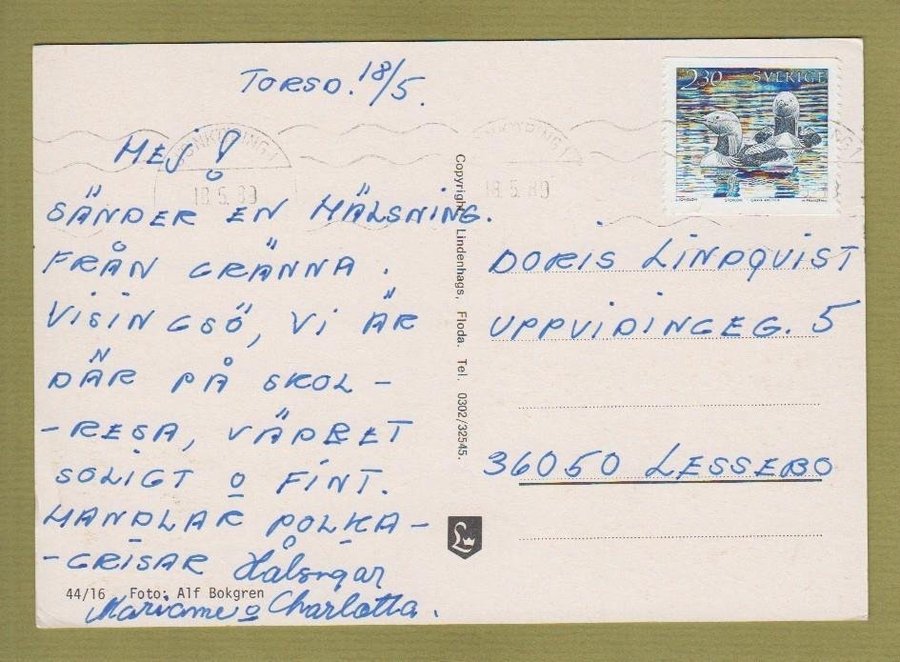 TORSD. 18/5.
HEJ!
SÄNDER EN HÄLSNING.
FRÅN GRÄNNA.
VISINGSÖ, VI ÄR
DÄR PÅ SKOL-
-RESA, VÄDRET
SOLIGT O FINT.
HANDLAR POLKA-
-GRISAR Hälsngar
Marianne o Charlotta.
44/16 Foto: Alf Bokgren
Copyright Lindenhags, Floda. Tel. 0302/32545.
L
2.30 SVERIGE
JÖNKÖPING 1
18.5.89
18.5.89
DORIS LINDQUIST
UPPVIDINGEG. 5
36050 LESSEBO